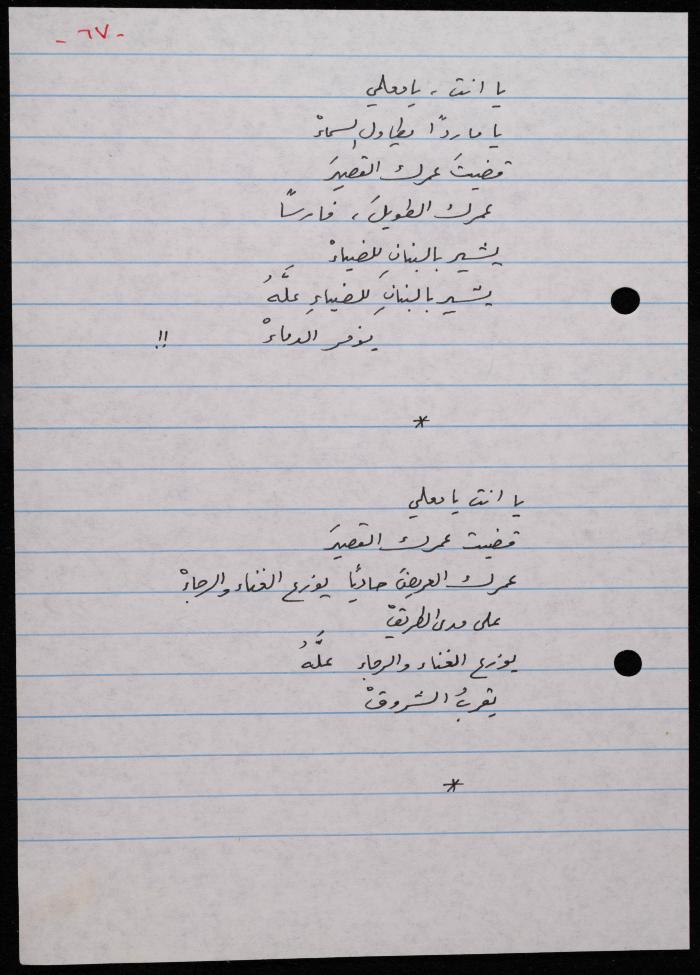 - ٦٧ -
يا انت ، يا معلمي
يا مارداً يطاول السماءْ
قضيتَ عمرك القصيرَ
عمرك الطويلَ ، فارساً
يشير بالبنان للضياءْ
يشير بالبنانِ للضياءِ علَّهُ
يوفر الدماءْ !!
*
يا انت يا معلمي
قضيت عمرك القصيرَ
عمرك العريضَ حادياً يوزع الغناء والرجاءْ
على مدى الطريقْ
يوزع الغناء والرجاء علَّهُ
يقربُ الشروقْ
*